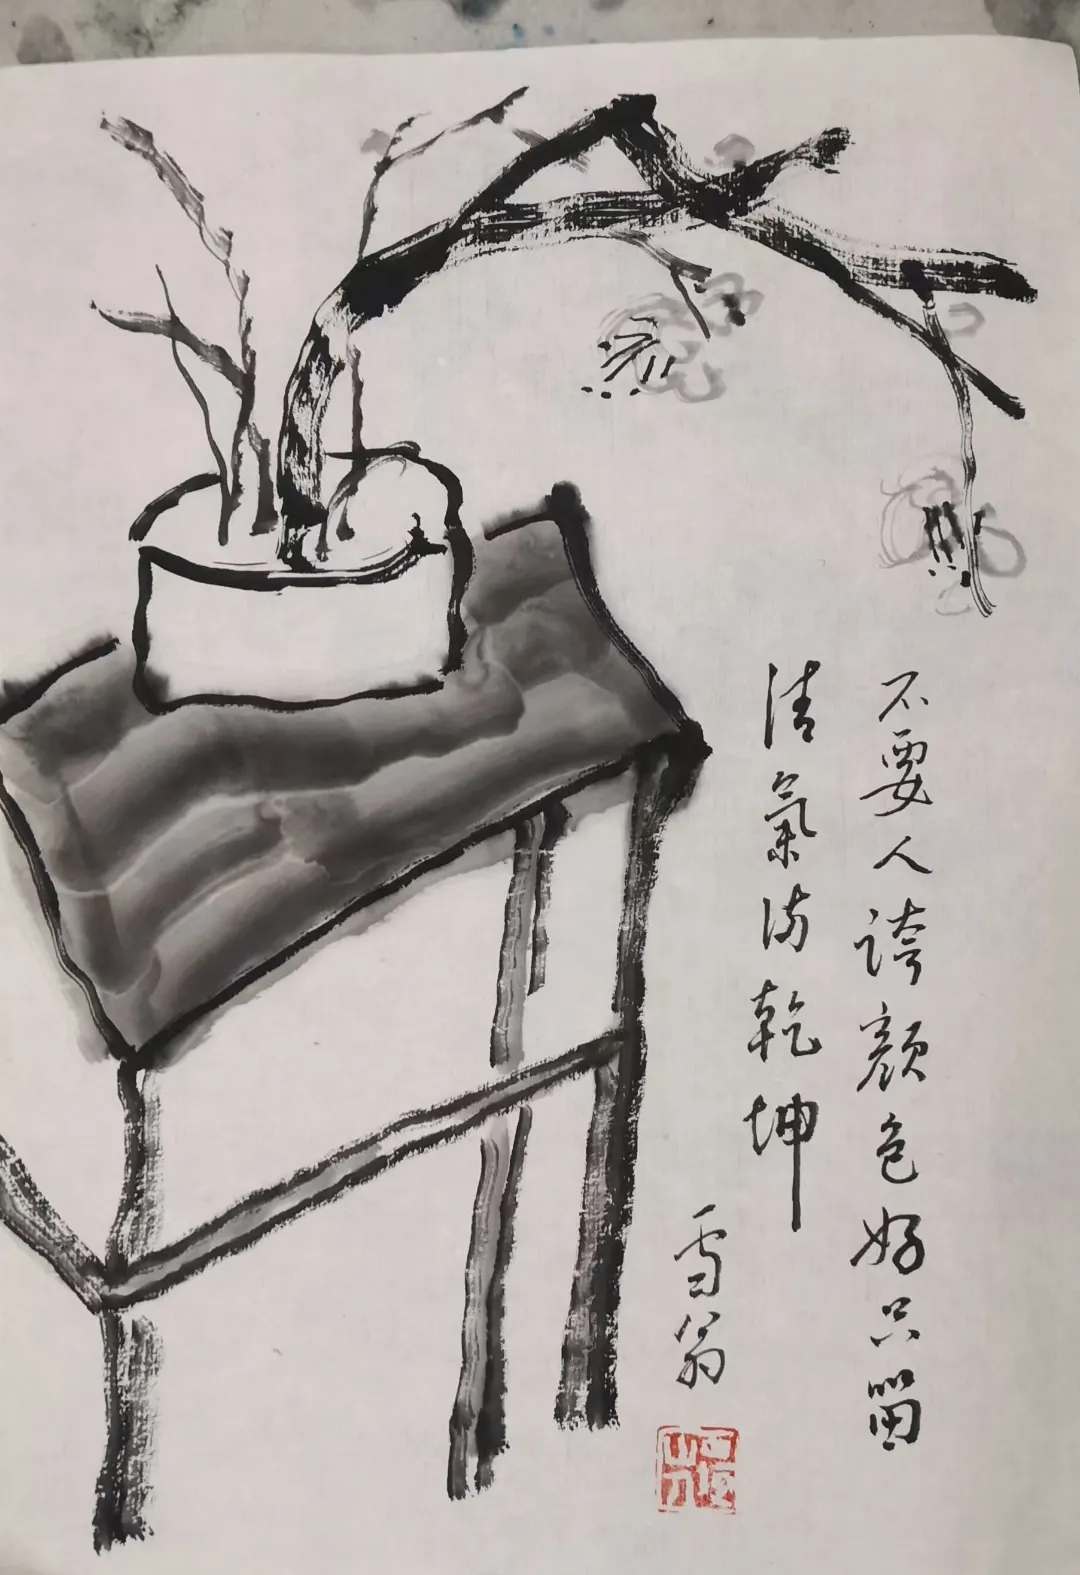 不要人誇颜色好只留
清氣满乾坤
雪翁